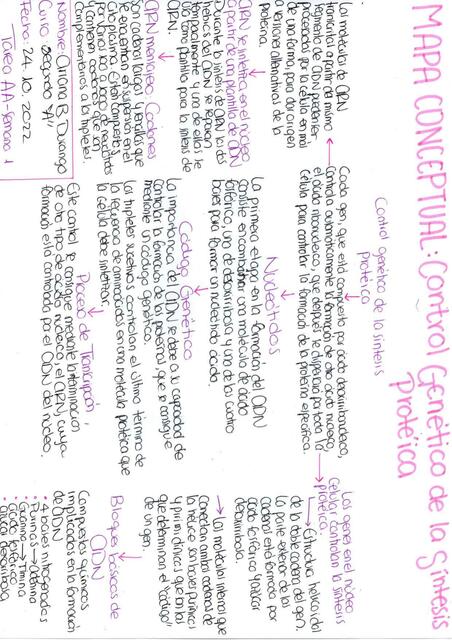 MAPA CONCEPTUAL: Control Genético de la Síntesis
Protéica
Control genético de la síntesis
protéica
Cada gen, que está compuesto por ácido desoxirribonucleico,
controla automáticamente la formación de otro ácido nucleico,
el ácido ribonucleico, que después se dispersa por toda la
célula para controlar la formación de la proteína específica.
Las moléculas de ARN
transcritas a partir del mismo
segmento de ADN pueden ser
procesadas por la célula en más
de una forma, para dar origen
a versiones alternativas de la
proteína.
ARN se sintetiza en el núcleo
a partir de una plantilla de ADN
Durante la síntesis de ARN las dos
hélices del ADN se separan
temporalmente y una de ellas se
usa como plantilla para la síntesis de
ARN.
ARN mensajero Codones
son cadenas largas y sencillas que
se encuentran en suspensión en el
citoplasma y están compuestas
por varios cientos a miles de nucleótidos
y contienen codones que son
complementarios a los tripletes.
Nombre: Oriana B. Durango
Curso: segundo "A"
Fecha: 24.10.2022
Tarea AA-semana 1
Nucleótidos
La primera etapa en la formación del ADN
consiste en combinar una molécula de ácido
fosfórico, una de desoxirribosa y una de las cuatro
bases para formar un nucleótido ácido.
Código Genético
La importancia del ADN se debe a su capacidad de
controlar la formación de las proteínas, que se consigue
mediante un código genético.
Los tripletes sucesivos controlan el último término de
la secuencia de aminoácidos en una molécula protéica que
la célula debe sintetizar.
Proceso de Transcripción
Este control se consigue mediante la intermediación
de otro tipo de ácido nucleico, el ARN, cuya
formación está controlada por el ADN del núcleo.
Los genes en el núcleo
celular controlan la síntesis
protéica
→ Estructura helicoidal
de la doble cadena del gen.
la parte exterior de las
cadenas está formada por
ácido fosfórico y azúcar
desoxirribosa.
→ Las moléculas internas que
conectan ambas cadenas de
la hélice son bases púricas
y pirimidínicas que son las
que determinan el "código"
de un gen.
Bloques básicos de
ADN
Compuestos químicos
implicados en la formación
de ADN
• 4 bases nitrogenadas
• Purinas → adenina
• Guanina → Timina
• ácido fosfórico